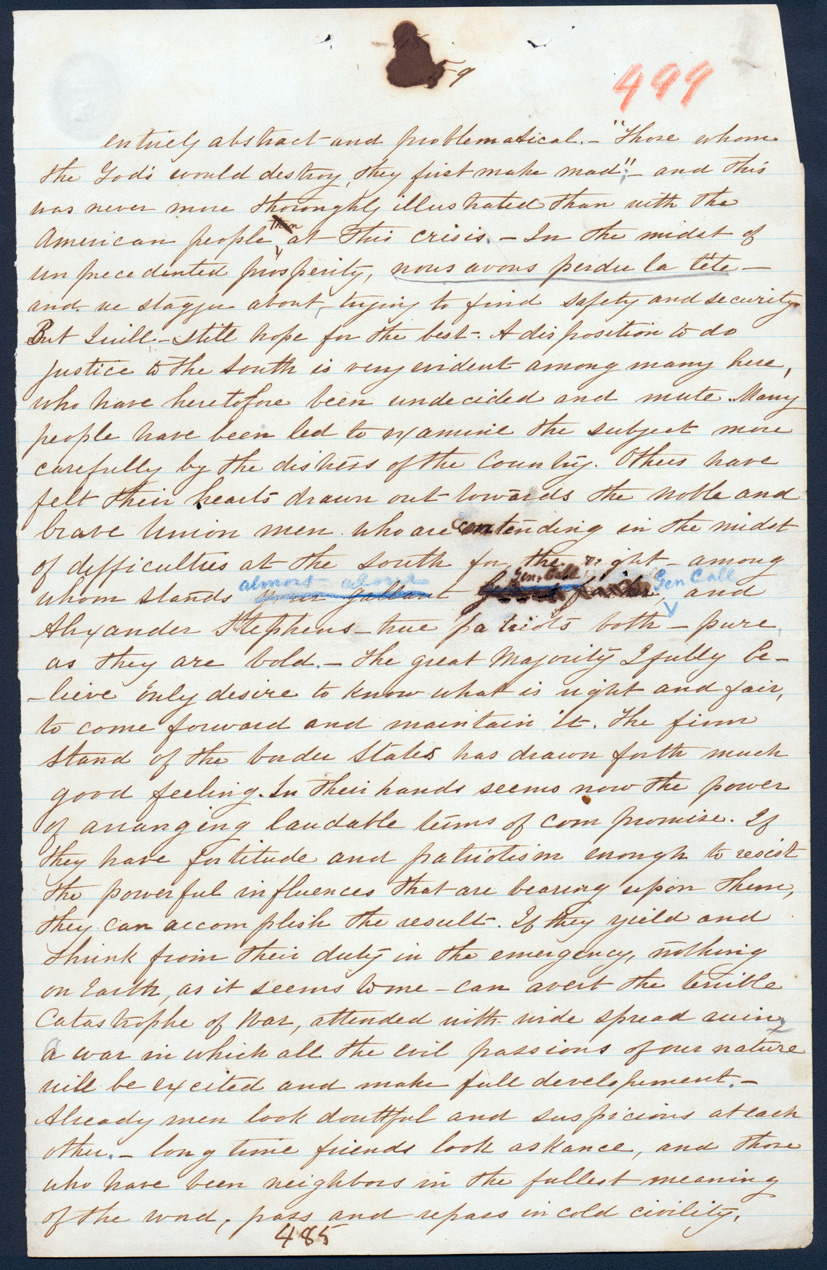 59
499
entirely abstract and problematical. – "Those whom
the Gods would destroy, they first make mad"; – and this
was never more thoroughly illustrated than with the
American people, than at this crisis. – In the midst of
unprecedented prosperity, nous avons perdu la tete –
and we stagger about, trying to find safety and security
But I will – still hope for the best –. A disposition to do
justice to the South is very evident among many here,
who have heretofore been undecided and mute. Many
people have been led to examine the subject more
carefully by the distress of the Country. Others have
felt their hearts drawn out towards the noble and
brave Union men who are contending in the midst
of difficulties at the South for the right – among
almost alone Gen. Call Gen Call
whom stands your gallant and
Alexander Stephens – true patriots both – pure
as they are bold. – The great Majority I fully be-
-lieve only desire to know what is right and fair,
to come forward and maintain it. The firm
stand of the border States has drawn forth much
good feeling. In their hands seems now the power
of arranging laudable terms of compromise. If
they have fortitude and patriotism enough to resist
the powerful influences that are bearing upon them,
they can accomplish the result. If they yield and
shrink from their duty in the emergency, nothing
on Earth, as it seems to me – can avert the terrible
Catastrophe of War, attended with wide spread ruin,
a war in which all the evil passions of our nature
will be excited and make full developement. –
Already men look doubtful and suspicious at each
other. – long time friends look askance, and those
who have been neighbors in the fullest meaning
of the word, pass and repass in cold civility.
485